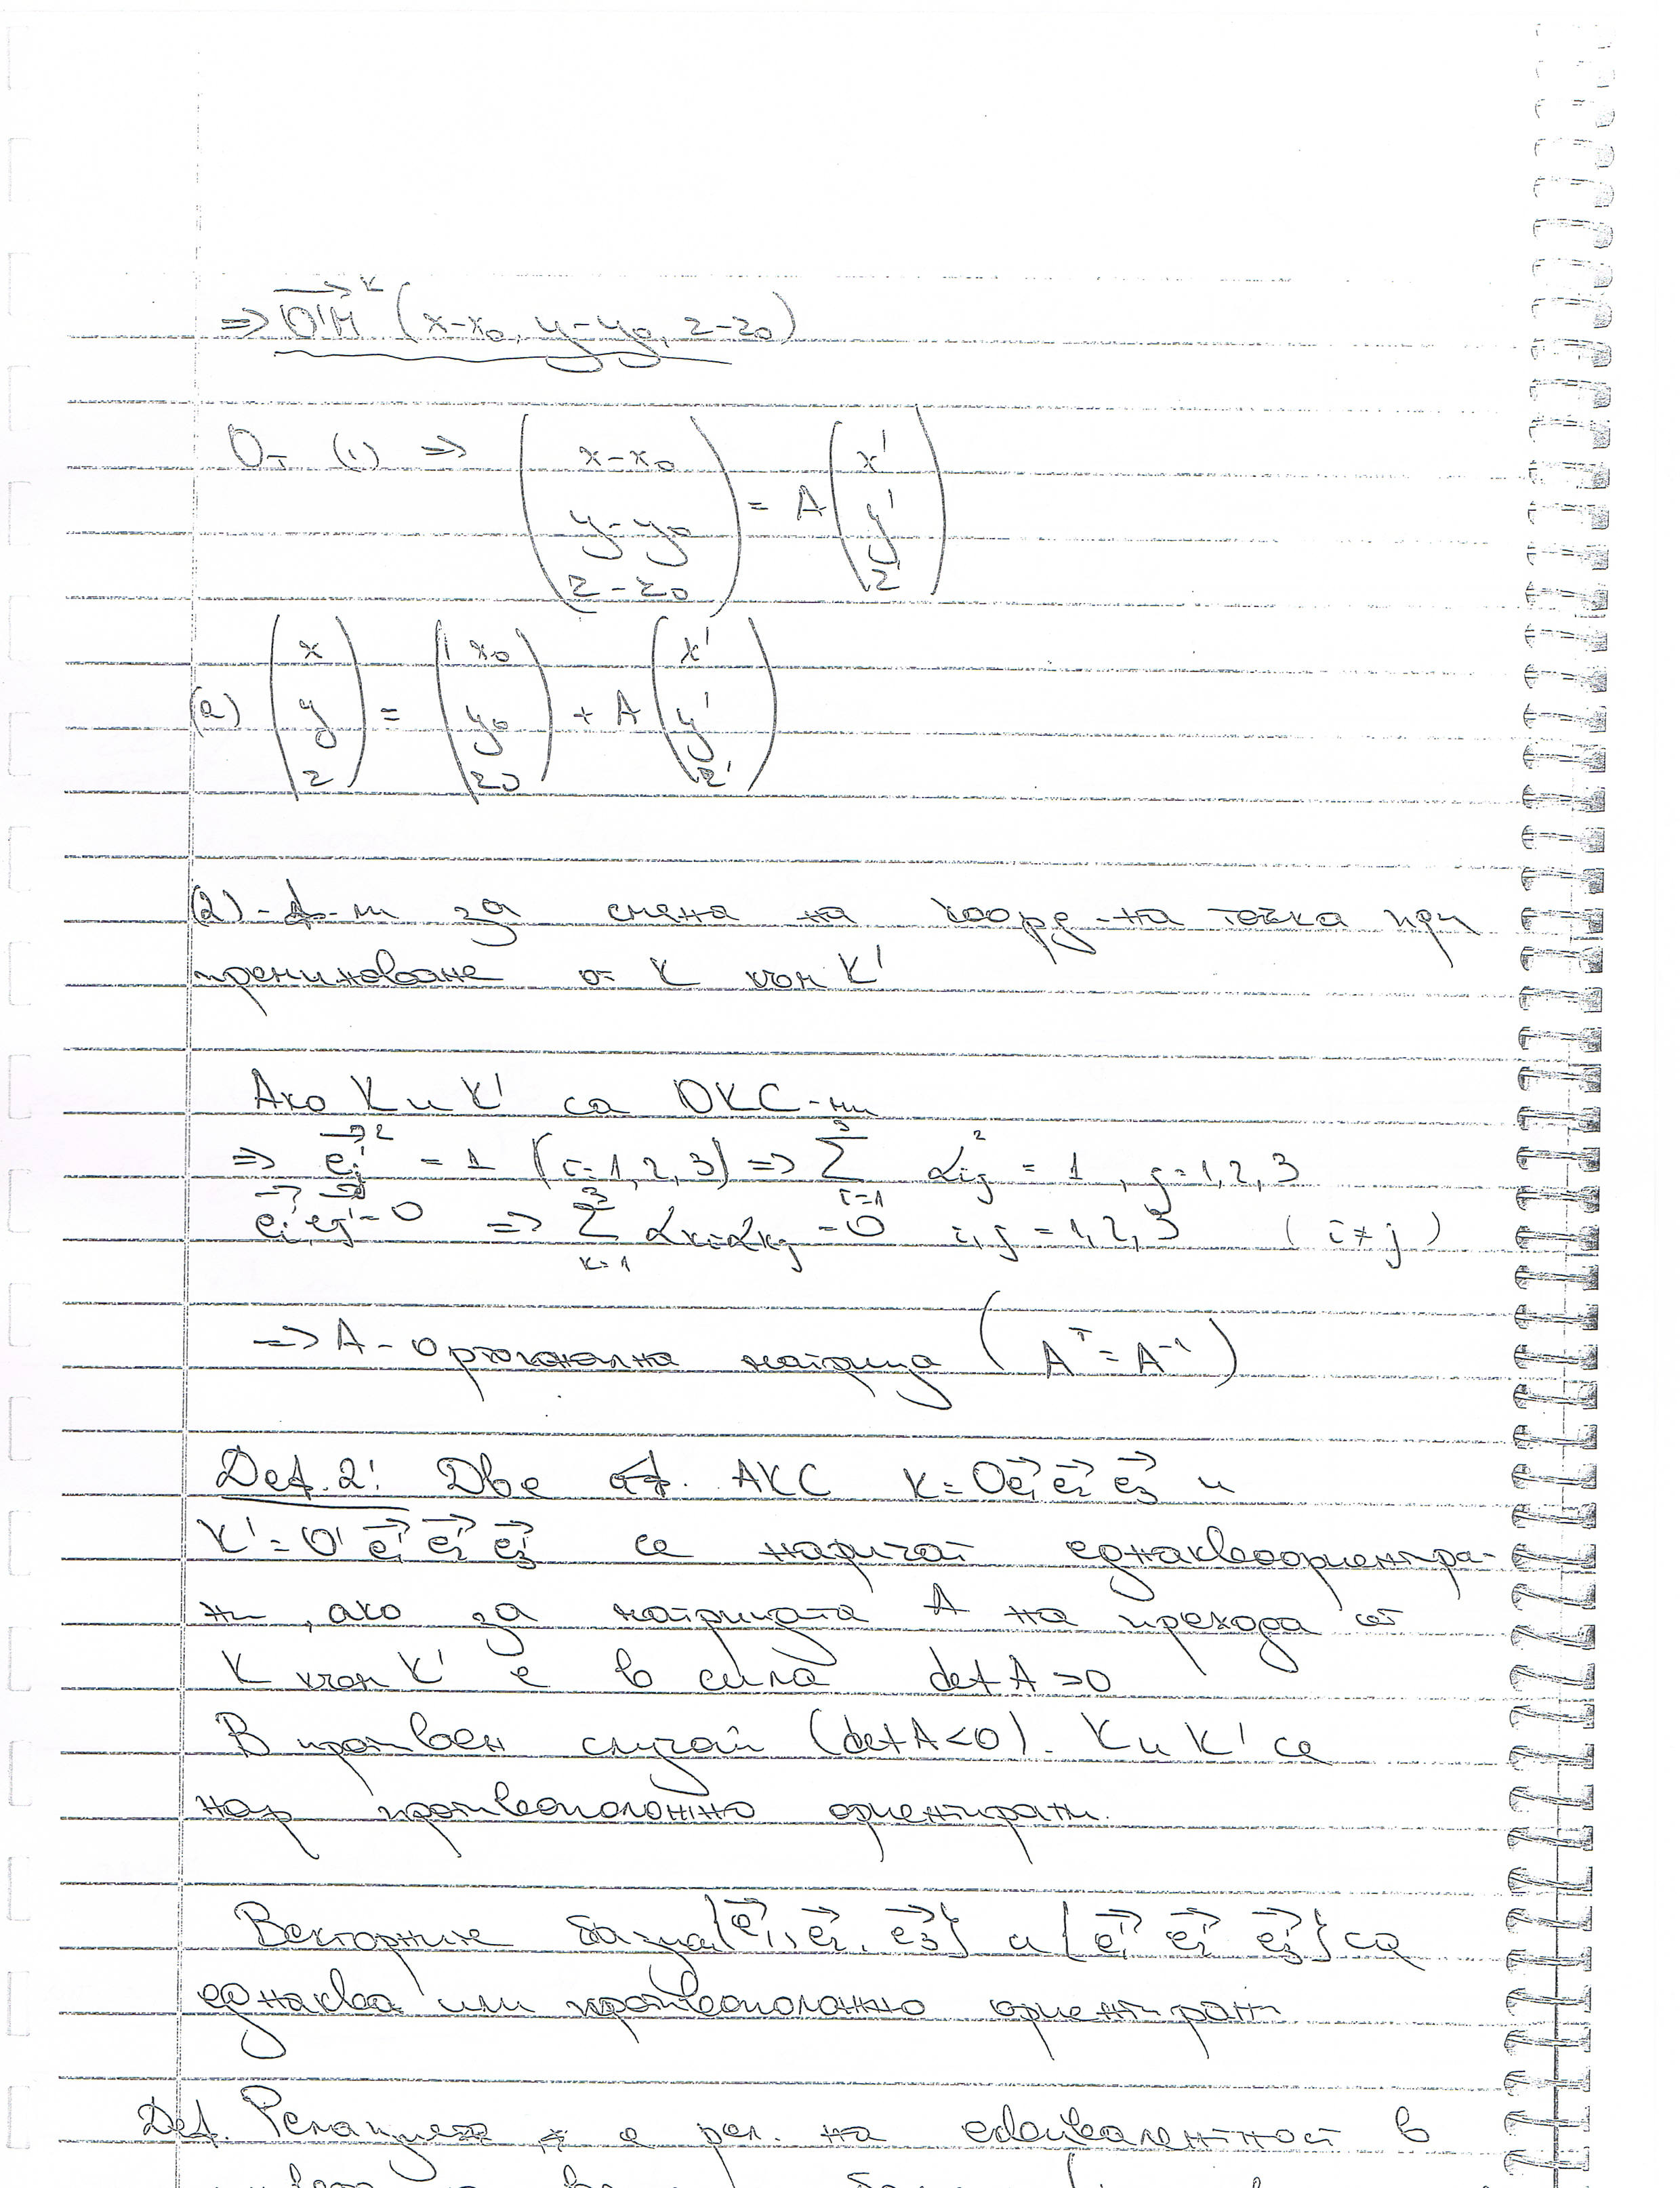 => O'M^K (x-x₀, y-y₀, z-z₀)
От (1) => (x-x₀ y-y₀ z-z₀) = A (x' y' z')
(2) (x y z) = (x₀ y₀ z₀) + A (x' y' z')
(2) - ф-ли за смяна на коорд-на точка при
преминаване от K към K'
Ако K и K' са ОКС-ми
=> e⃗ᵢ'² = 1 (i=1,2,3) => ∑ᵢ₌₁³ αᵢⱼ² = 1, j=1,2,3
e⃗ᵢ' e⃗ⱼ' = 0 => ∑ₖ₌₁³ αₖᵢαₖⱼ = 0 i,j = 1,2,3 (i≠j)
=> A - Ортогонална матрица (Aᵀ = A⁻¹)
Def. 2: Две АКС K = Oe⃗₁e⃗₂e⃗₃ и
K' = O'e⃗₁'e⃗₂'e⃗₃' се наричат еднаквоориентира-
ни, ако за матрицата A на прехода от
K към K' е в сила det A > 0
В противен случай (det A < 0). K и K' се
нар противоположно ориентирани.
Векторните базиса {e⃗₁, e⃗₂, e⃗₃} и {e⃗₁' e⃗₂' e⃗₃'} са
еднаква или противоположно ориентирани
Def. Релация е рел. на еквивалентност в